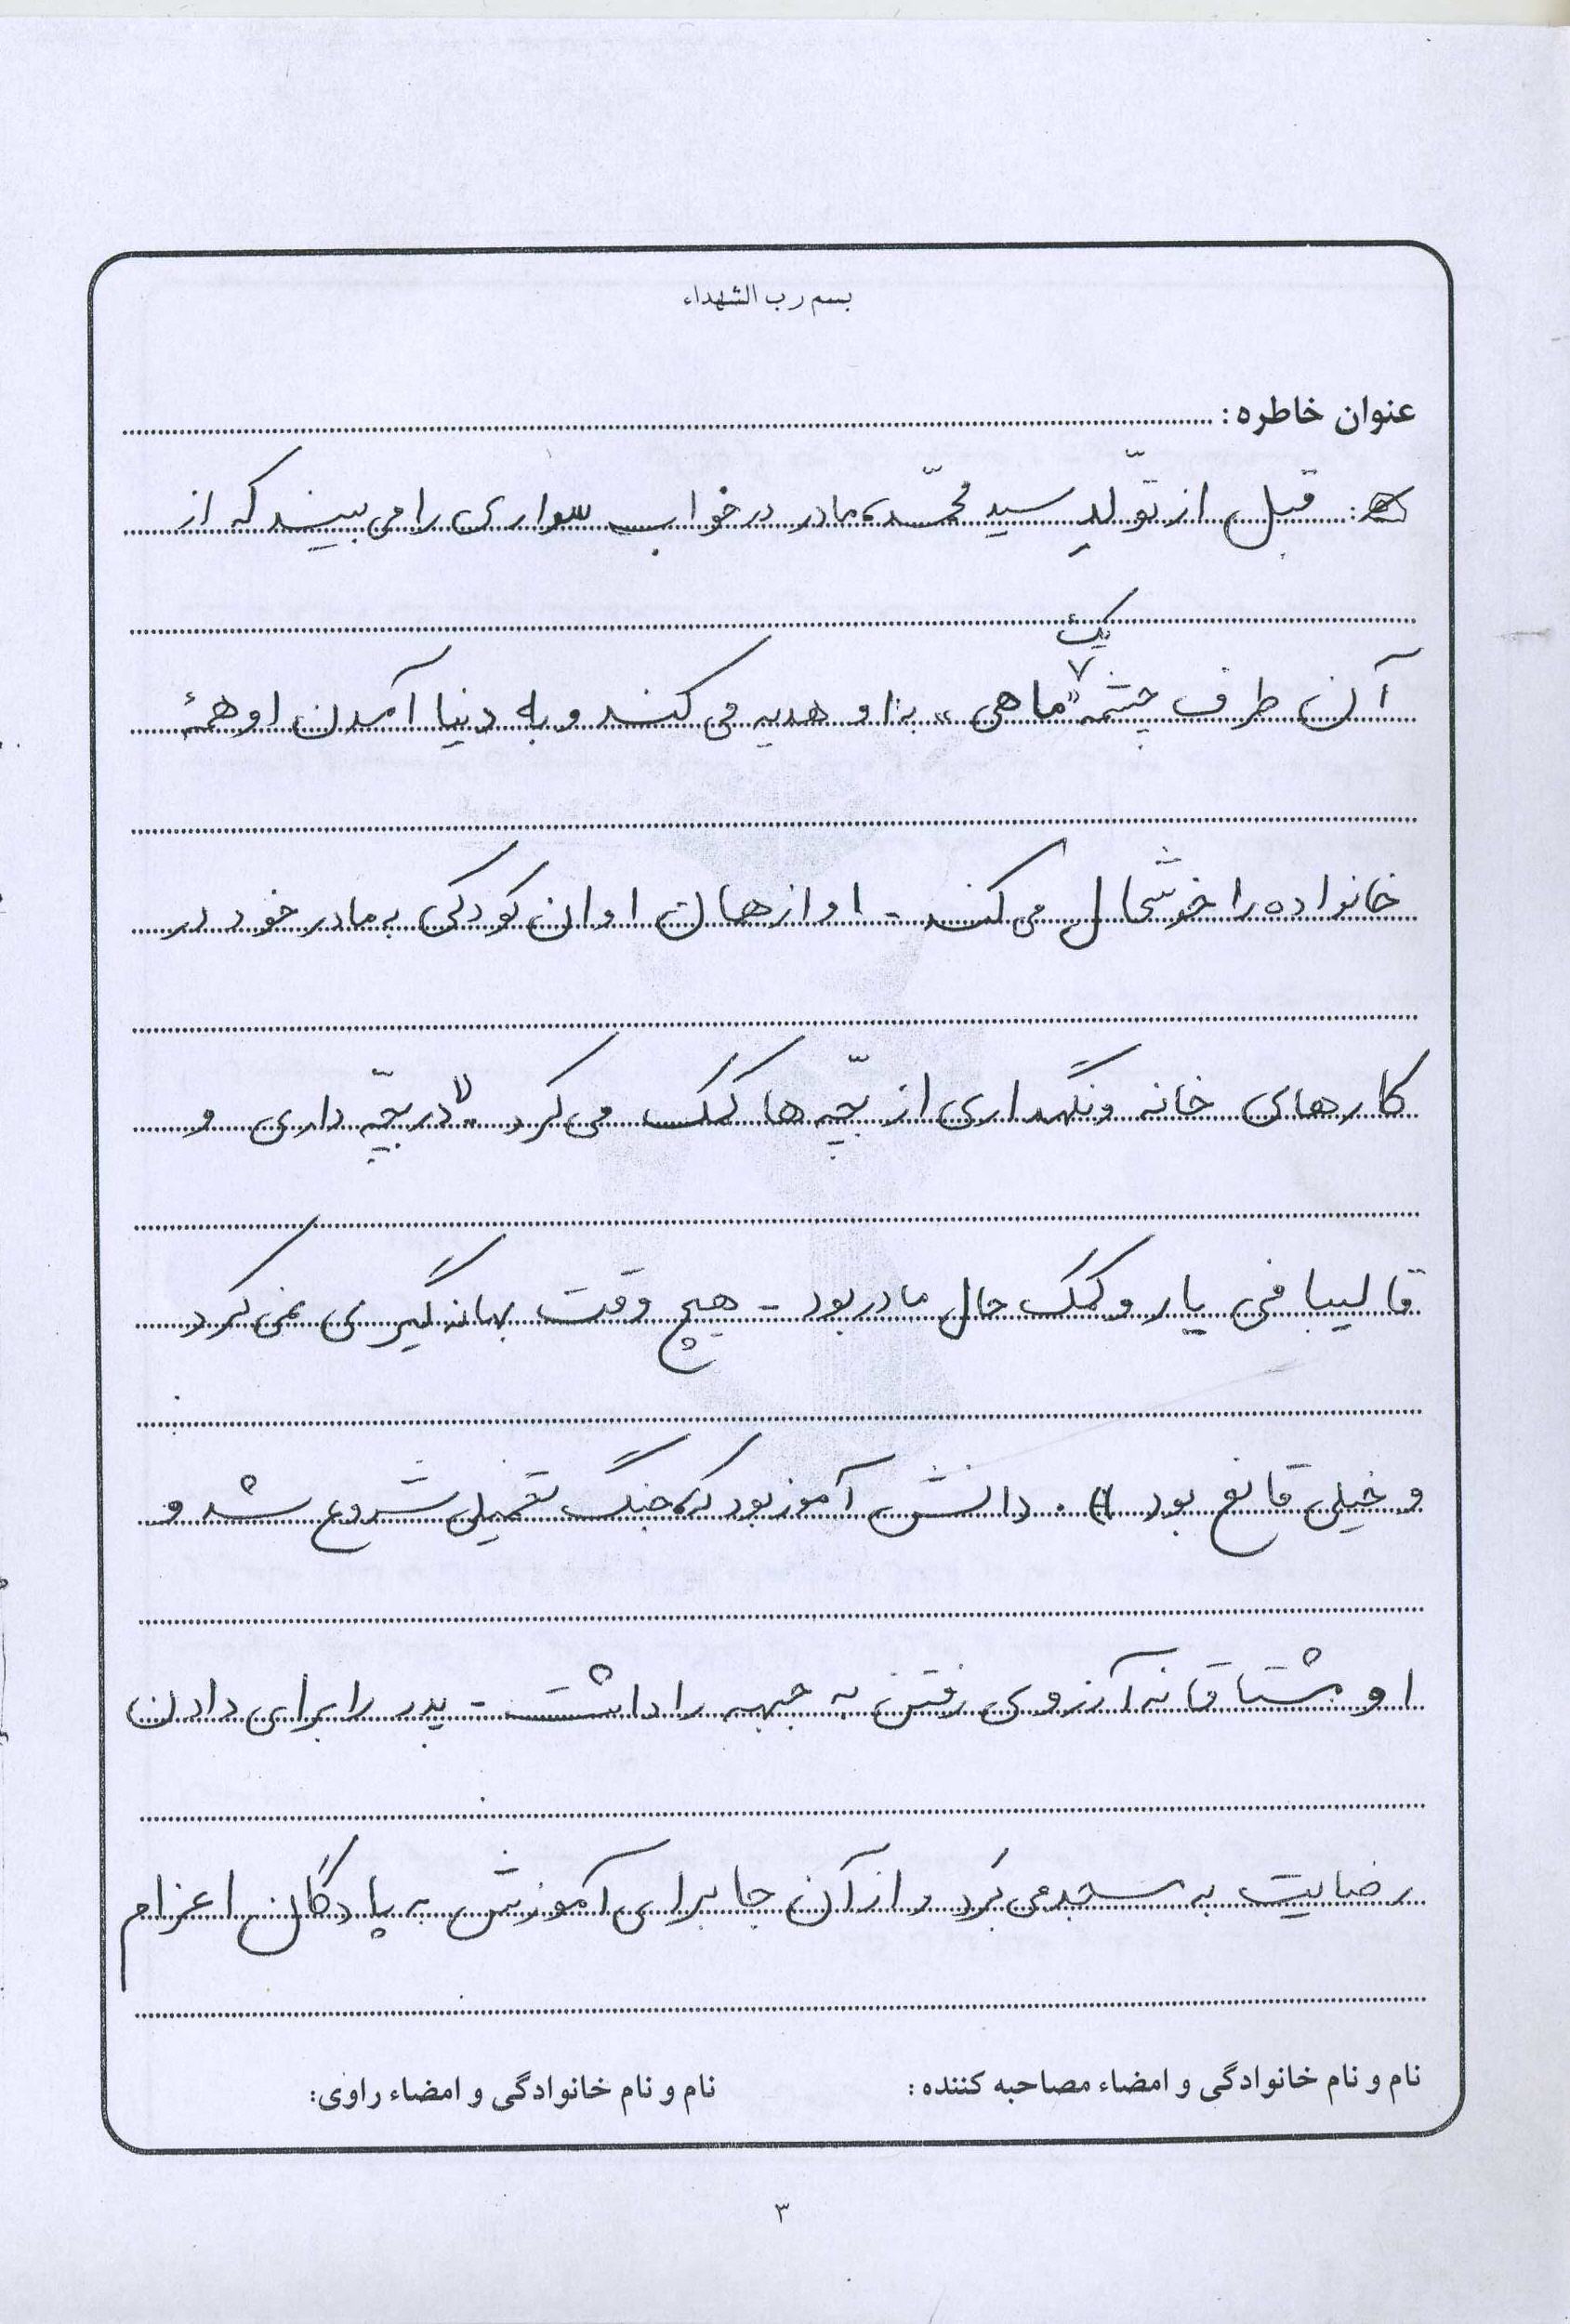 بسم رب الشهداء
عنوان خاطره :
: قبل از تولّدِ سید محمّد، مادر در خواب سواری را می بیند که از
آن طرف چشمه یک «ماهی» به او هدیه می کند و به دنیا آمدن او همهٔ
خانواده را خوشحال می کند - او از همان اوان کودکی به مادر خود در
کارهای خانه و نگهداری از بچّه ها کمک می کرد «در بچّه داری و
قالیبافی یار و کمک حال مادر بود - هیچ وقت بهانه گیری نمی کرد
و خیلی قانع بود». دانش آموز بود که جنگ تحمیلی شروع شد و
او مشتاقانه آرزوی رفتن به جبهه را داشت - پدر را برای دادن
رضایت به مسجد می بَرد و از آن جا برای آموزش به پادگان اعزام
نام و نام خانوادگی و امضاء مصاحبه کننده : نام و نام خانوادگی و امضاء راوی:
۳